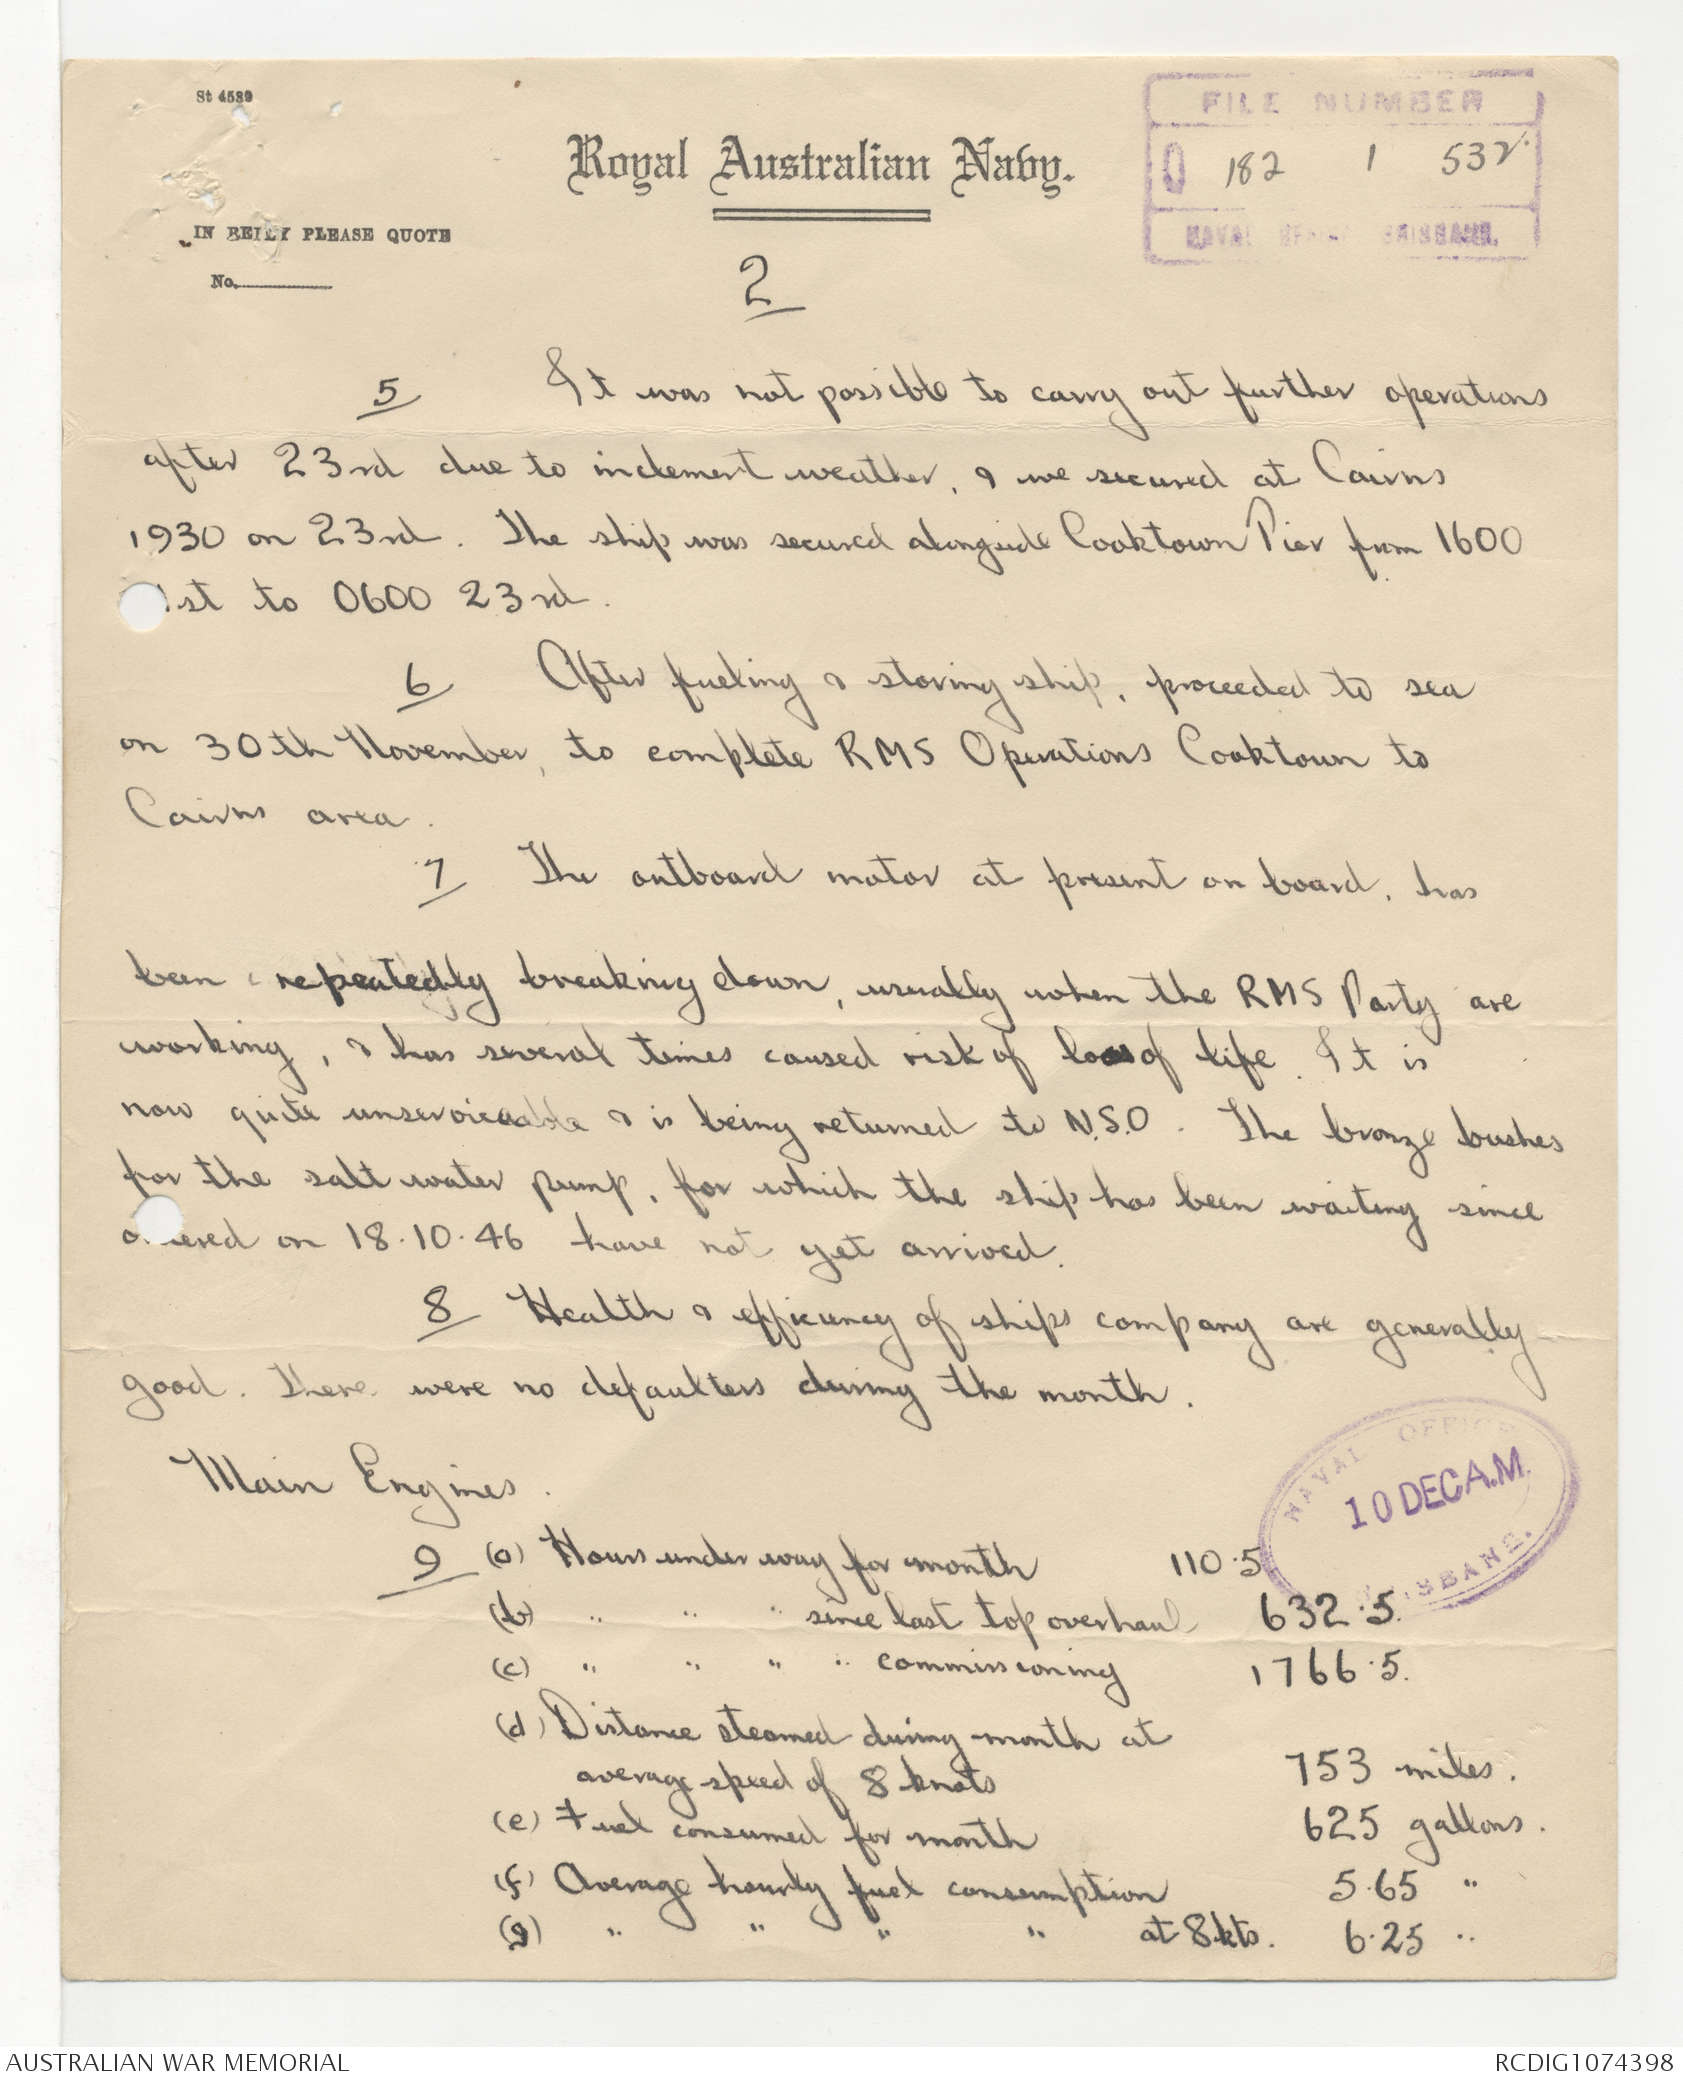 St 4539
FILE NUMBER
Royal Australian Navy.
182 1 532
NAVAL BRISBANE.
IN REPLY PLEASE QUOTE
No.
2
5 It was not possible to carry out further operations
after 23rd due to inclement weather, & we secured at Cairns
1930 on 23rd. The ship was secured alongside Cooktown Pier from 1600
1st to 0600 23rd.
6 After fueling & storing ship, proceeded to sea
on 30th November, to complete RMS Operations Cooktown to
Cairns area.
7 The outboard motor at present on board, has
been repeatedly breaking down, usually when the RMS Party are
working, & has several times caused risk of loss of life. It is
now quite unserviceable & is being returned to N.S.O. The bronze bushes
for the salt water pump, for which the ship has been waiting since
ordered on 18.10.46 have not yet arrived.
8 Health & efficiency of ships company are generally
good. There were no defaulters during the month.
Main Engines.
NAVAL OFFICE
10 DEC A.M.
BRISBANE.
9 (a) Hours under way for month 110.5
(b) " " " since last top overhaul 632.5.
(c) " " " " commissioning 1766.5.
(d) Distance steamed during month at
average speed of 8 knots 753 miles.
(e) Fuel consumed for month 625 gallons.
(f) Average hourly fuel consumption 5.65 "
(g) " " " " at 8 kts. 6.25 "
AUSTRALIAN WAR MEMORIAL
RCDIG1074398